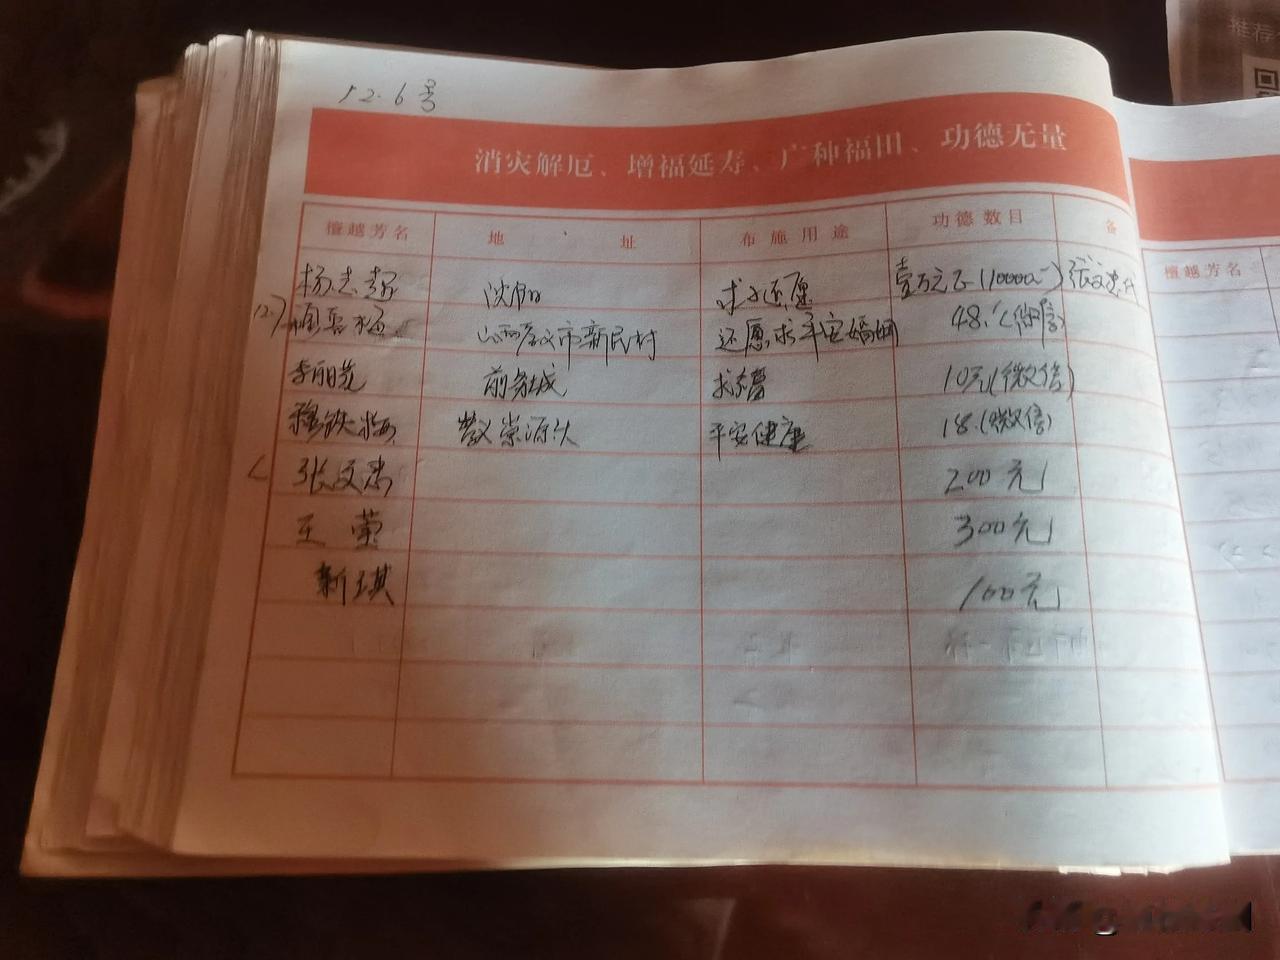 12.6号
消灾解厄、增福延寿、广种福田、功德无量
檀越芳名 地址 布施用途 功德数目 备
檀越芳名
杨志超 沈阳 求子还愿 壹万元正(10000元) 张文忠代
12.7 山西孝义市新民村 还愿求平安婚姻 48.(微信)
李丽先 求 10元(微信)
穆铁梅 孝义崇源头 平安健康 18.(微信)
张文忠 200元
王莹 300元
靳琪 100元
推荐